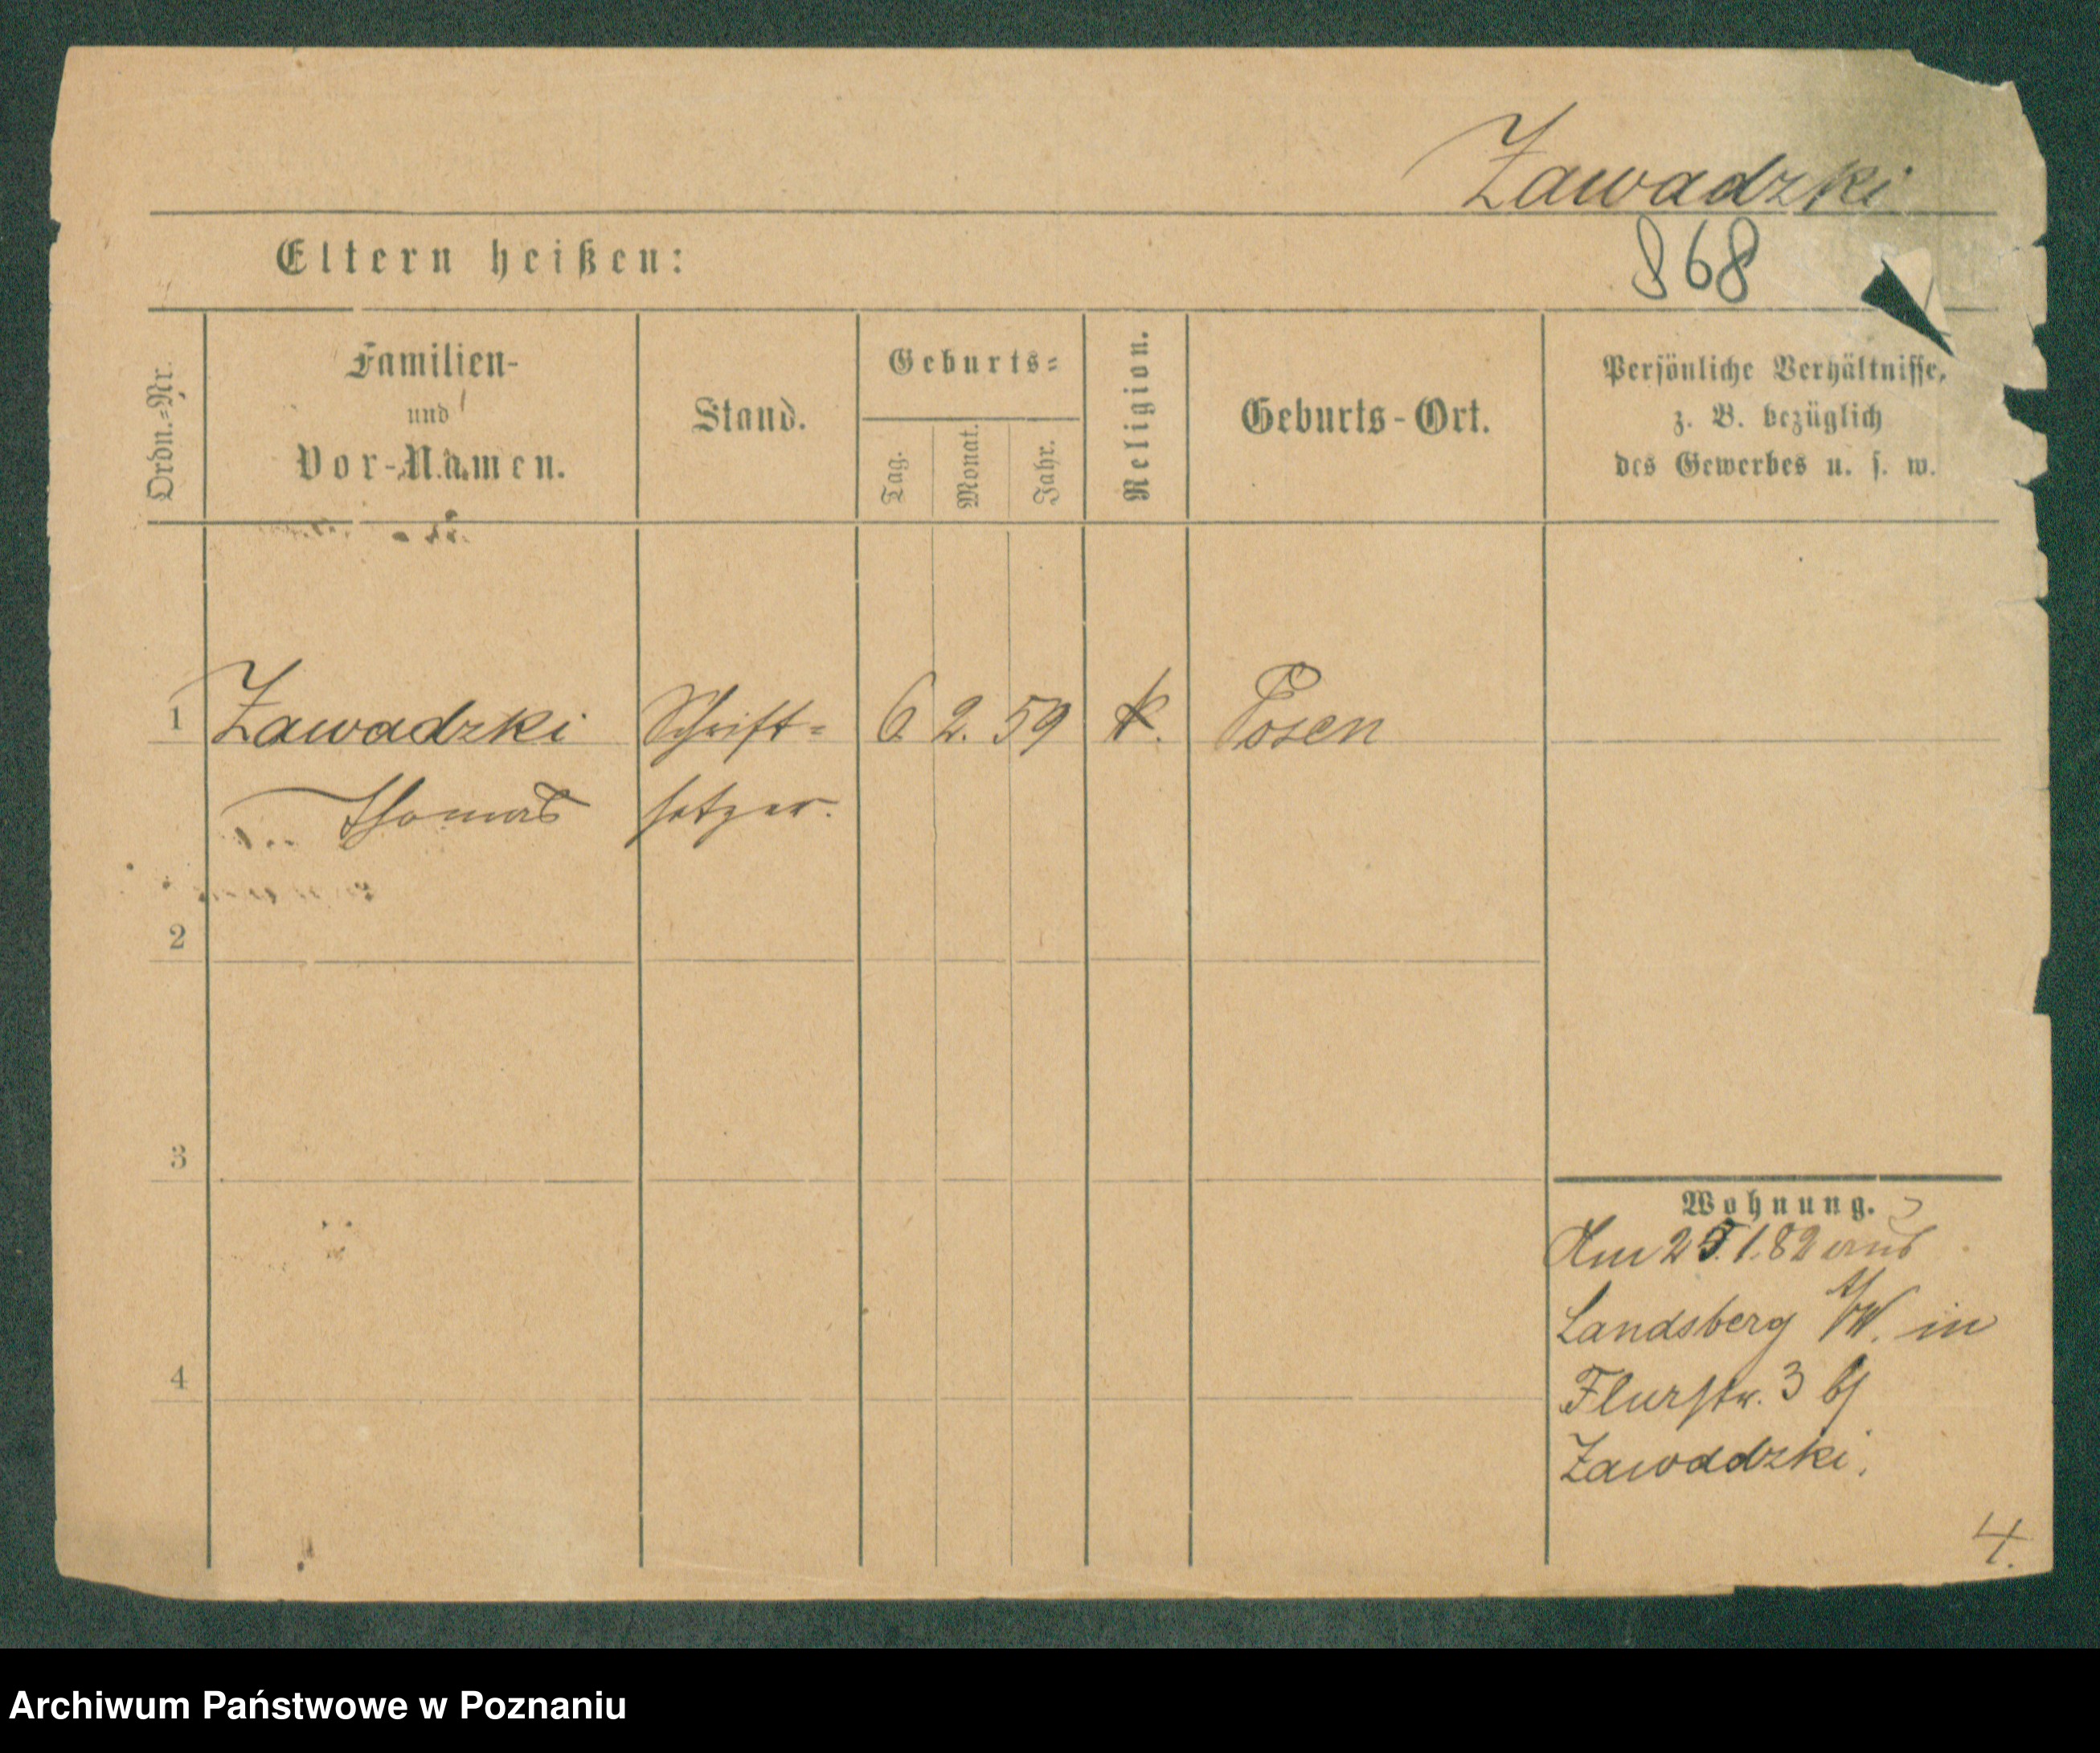 Zawadzki
868
Eltern heißen:
Ordn.=Nr.
Familien-
und
Vor-Namen.
Stand.
Geburts=
Tag.
Monat.
Jahr.
Religion.
Geburts-Ort.
Persönliche Verhältnisse,
z. B. bezüglich
des Gewerbes u. s. w.
1 Zawadzki Schrift= 6. 2. 59 k. Posen
Thomas setzer.
2
3
4
Wohnung.
Am 25.1.82 aus
Landsberg a/W. in
Flurstr. 3 bj
Zawadzki.
4.
Archiwum Państwowe w Poznaniu